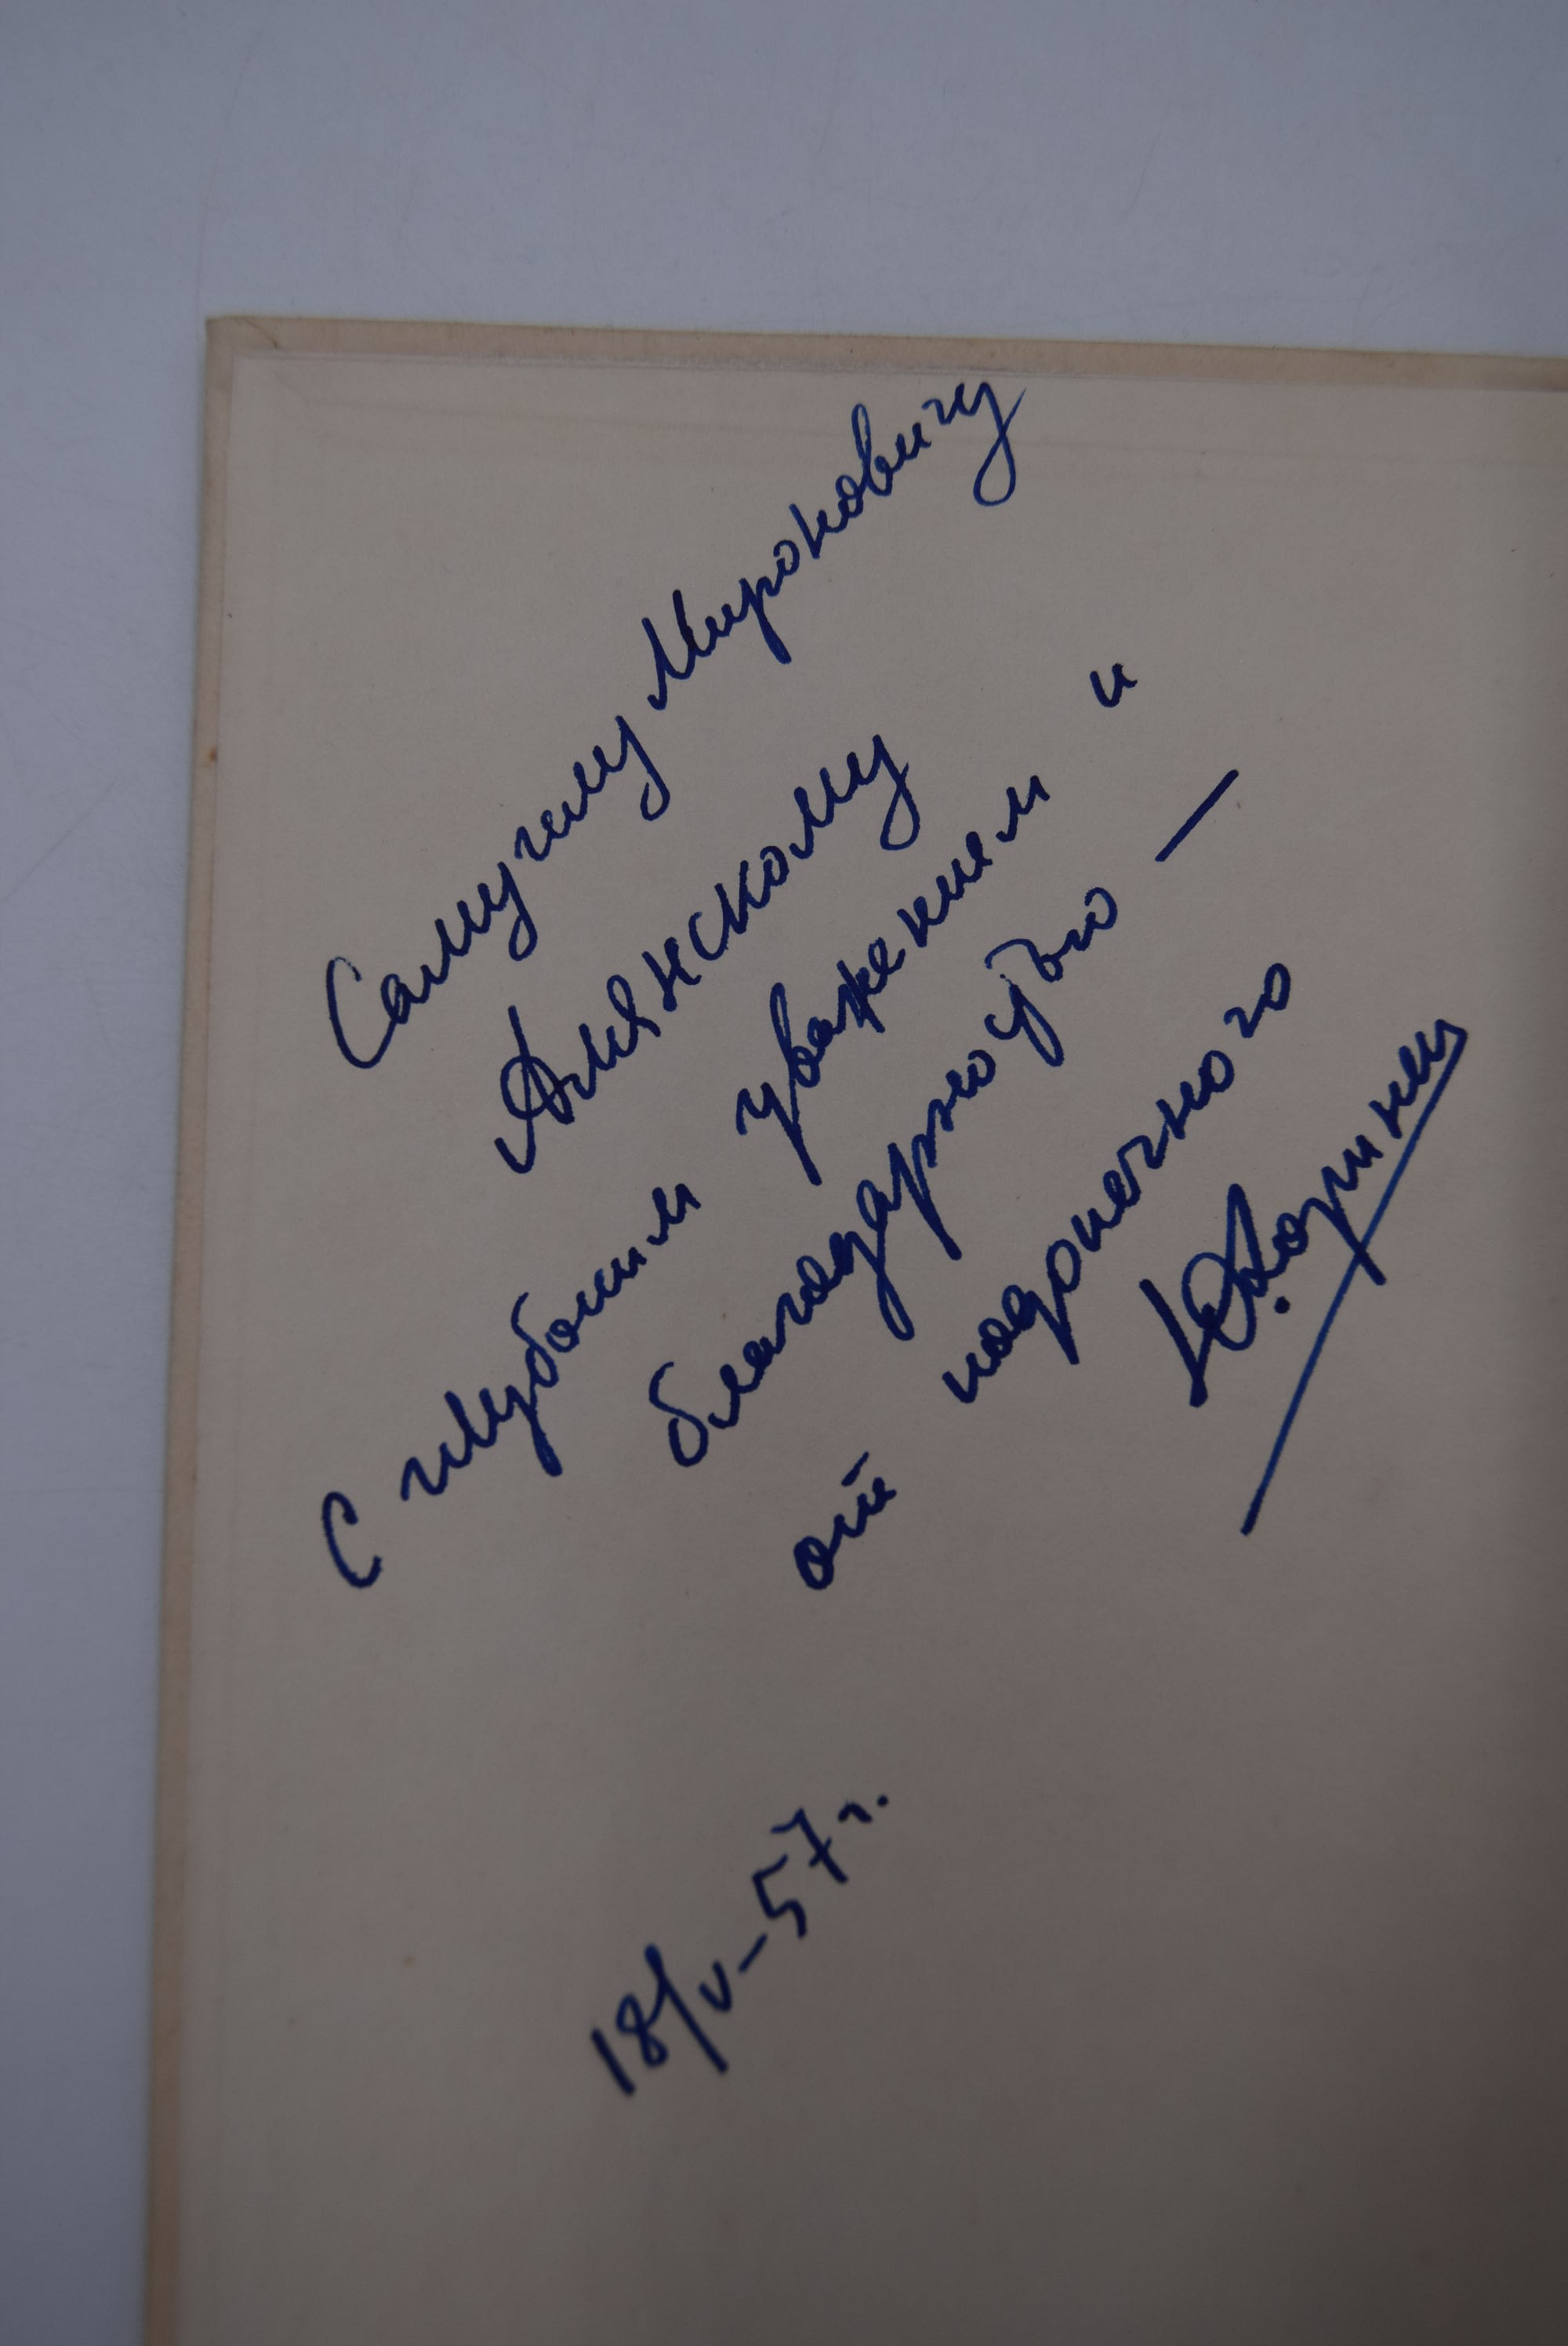 Самуилу Мироновичу
Алянскому
С глубоким уважением и
благодарностью —
от подопечного
18/V–57 г.